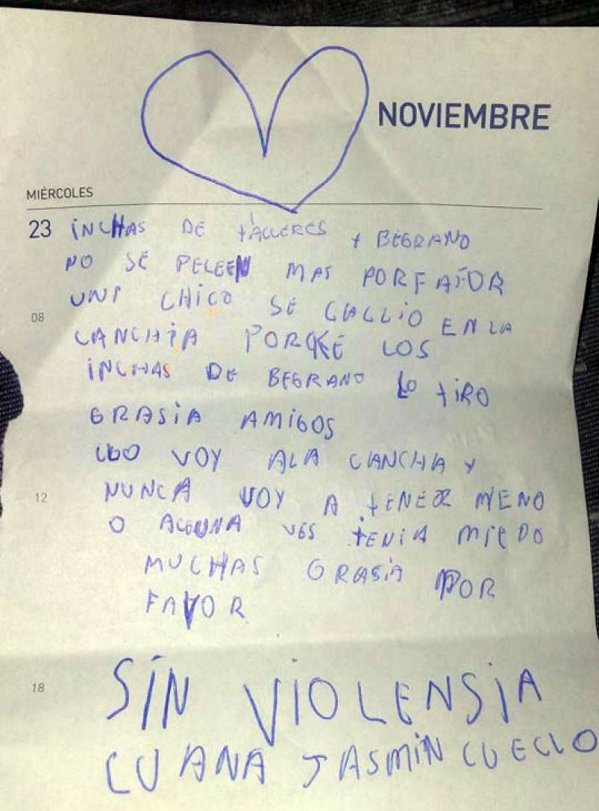 NOVIEMBRE
MIÉRCOLES
23 INCHAS DE TALLERES Y BEGRANO
NO SE PELEEN MAS PORFAFOR
08 UNI CHICO SE CALLIO EN LA
CANCHIA PORKE LOS
INCHAS DE BEGRANO LO TIRO
GRASIA AMIGOS
VOY ALA CANCHA Y
12 NUNCA VOY A TENER MIENO
O ALGUNA VES TENIA MIEDO
MUCHAS GRASIA POR
FAVOR
18 SIN VIOLENSIA
LUANA JASMIN CUELLO